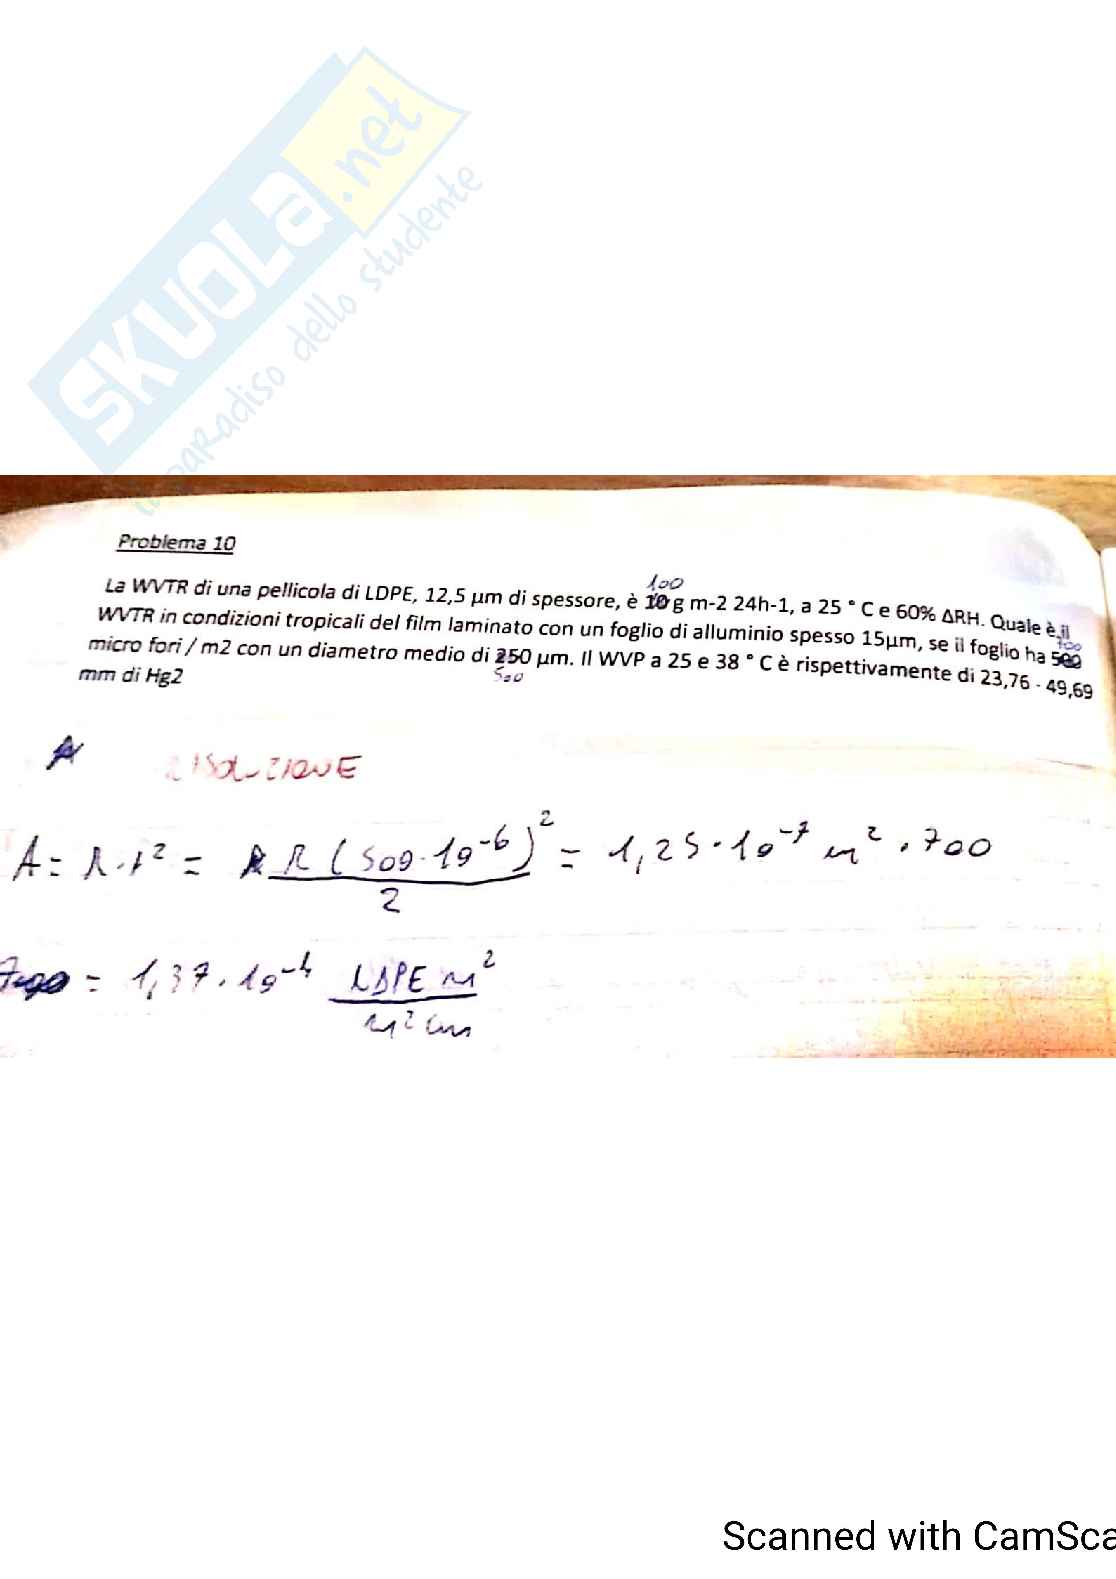 SKUOLA.net
il paradiso dello studente
Problema 10
100
La WVTR di una pellicola di LDPE, 12,5 µm di spessore, è 10 g m-2 24h-1, a 25 ° C e 60% ΔRH. Quale è il
WVTR in condizioni tropicali del film laminato con un foglio di alluminio spesso 15µm, se il foglio ha 500
micro fori / m2 con un diametro medio di 250 µm. Il WVP a 25 e 38 ° C è rispettivamente di 23,76 - 49,69
mm di Hg2
500
RISOLUZIONE
A = π · r² = π (500 · 10⁻⁶)² = 1,25 · 10⁻⁷ m² · 700
2
= 1,37 · 10⁻⁴ LDPE m²
m²
Scanned with CamSca